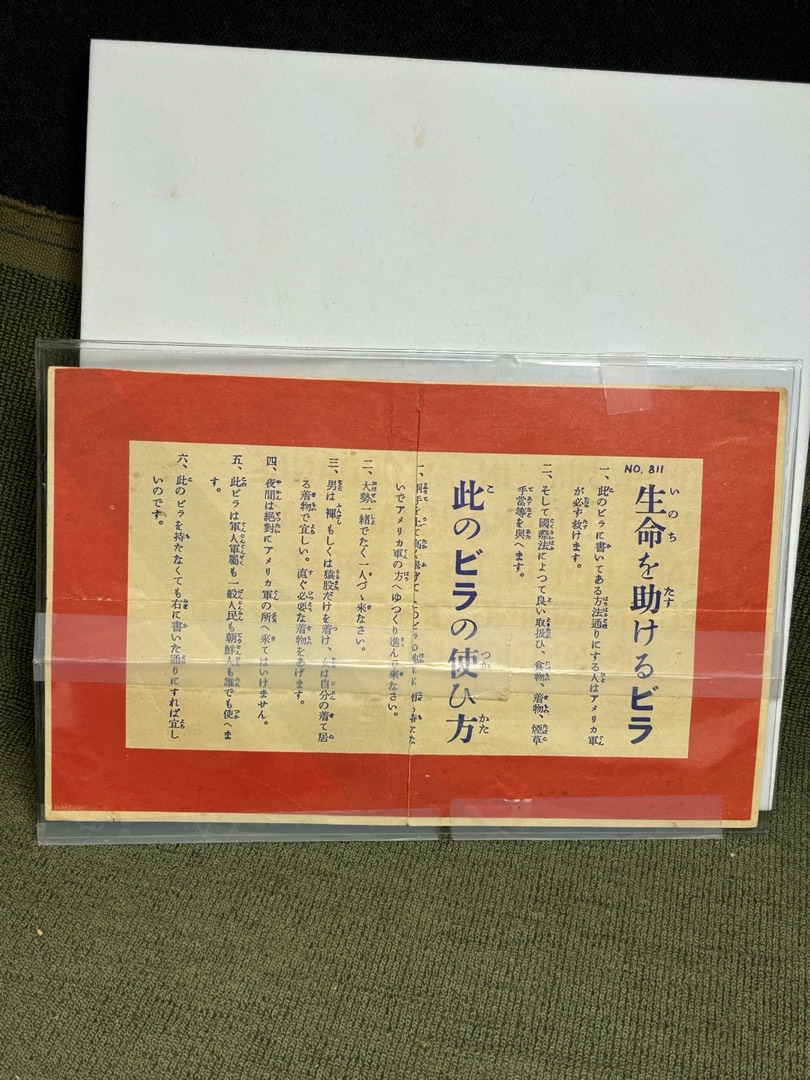 NO. 811
いのち たす
生命を助けるビラ
一、此のビラに書いてある方法通りにする人はアメリカ軍
が必ず救けます。
二、そして國際法によつて良い取扱ひ、食物、着物、煙草
手當等を與へます。
こ つか かた
此のビラの使ひ方
一、兩手を上て高く のビラの
いでアメリカ軍の方へゆつくり進んで來なさい。
二、大勢一緒でなく一人づゝ來なさい。
三、男は褌もしくは猿股だけを着け、女は自分の着て居
る着物で宜しい。直ぐ必要な着物をあげます。
四、夜間は絕對にアメリカ軍の所へ來てはいけません。
五、此ビラは軍人軍屬も一般人民も朝鮮人も誰でも使へま
す。
六、此のビラを持たなくても右に書いた通りにすれば宜し
いのです。